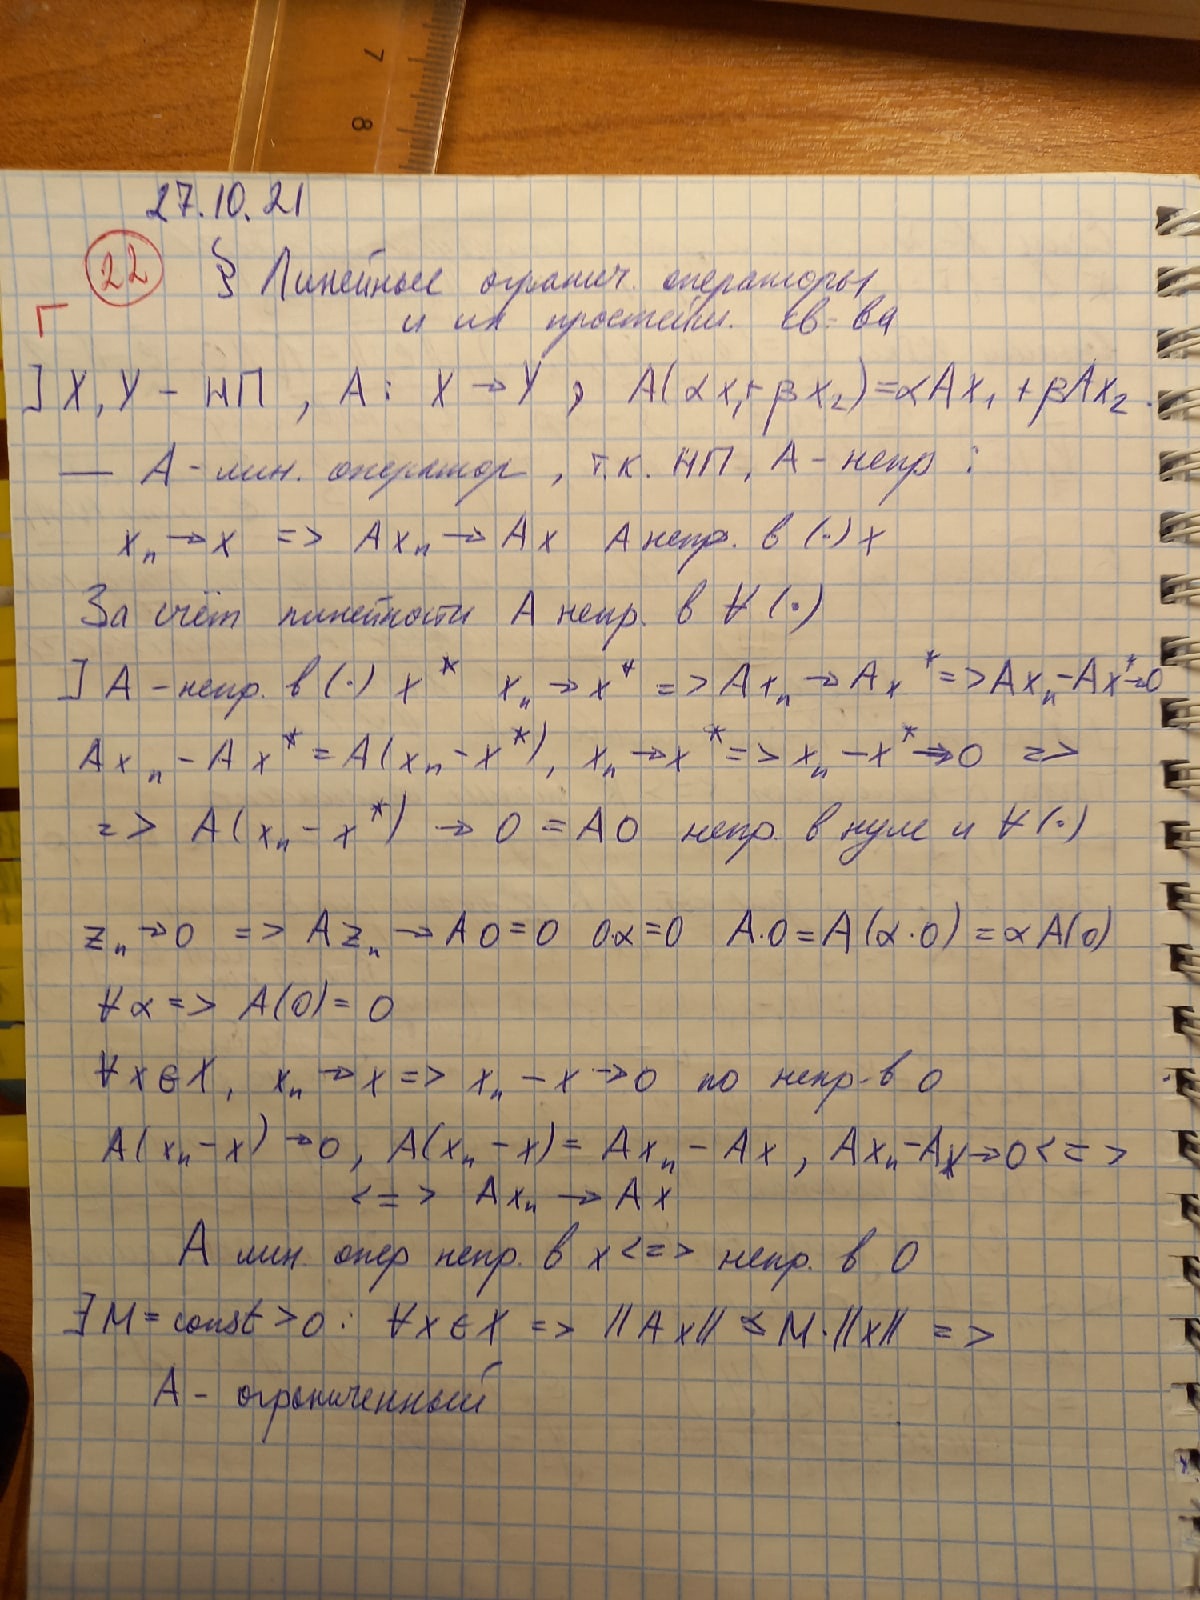 7
8
27.10.21
22 § Линейные огранич. операторы
и их простейш. св-ва
] X, Y - НП , A : X → Y , A(αx₁+βx₂)=αAx₁+βAx₂.
— A - лин. оператор , т.к. НП, A - непр :
xₙ→x => Axₙ→Ax A непр. в (·) x
За счёт линейности A непр. в ∀(·)
] A - непр. в (·) x* xₙ→x* => Axₙ→Ax* => Axₙ-Ax*→0
Axₙ - Ax* = A(xₙ - x*), xₙ→x* => xₙ - x* → 0 =>
=> A(xₙ - x*) → 0 = A0 непр. в нуле и ∀(·)
zₙ→0 => Azₙ→A0=0 0·α=0 A·0=A(α·0)=αA(0)
∀α => A(0) = 0
∀x∈X, xₙ→x => xₙ - x → 0 по непр-в 0
A(xₙ - x) → 0, A(xₙ - x) = Axₙ - Ax , Axₙ - Ax → 0 <=>
<=> Axₙ → Ax
A лин. опер непр. в x <=> непр. в 0
∃M = const > 0 : ∀x∈X => ||Ax|| ≤ M·||x|| =>
A - ограниченный